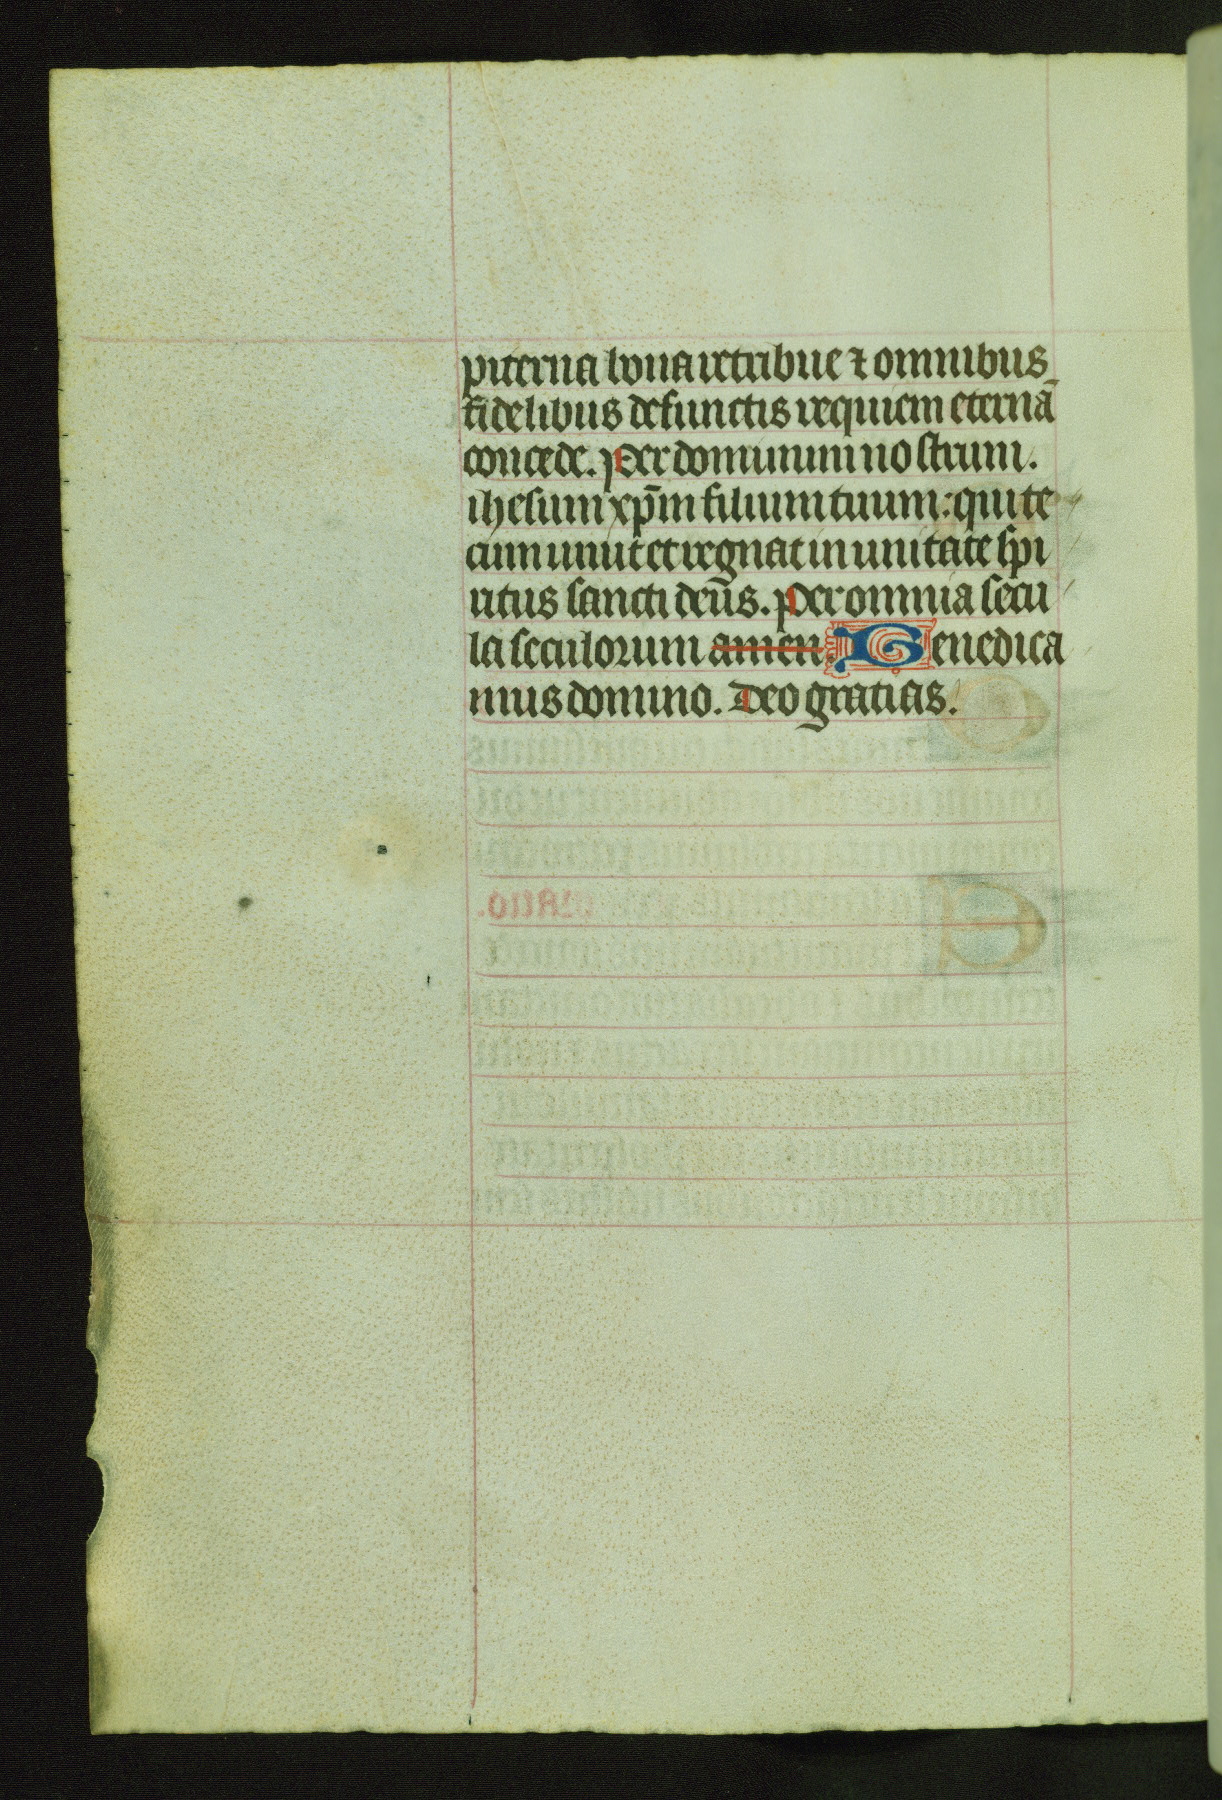 piterna bona retribue ⁊ omnibus
fidelibus defunctis requiem eternā
concede. Per dominum nostrum.
ihesum xp̄m filium tuum: qui te
cum uiuit et regnat in unitate spi
ritus sancti deūs. Per omnia secu
la seculorum amen. Benedica
mus domino. Deo gratias.